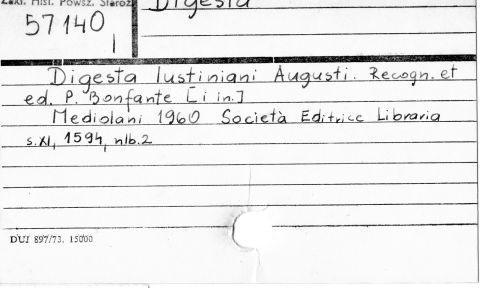 Zakł. Hist. Powsz. Staroż.
Digesta
57140
I
Digesta Iustiniani Augusti. Recogn. et
ed. P. Bonfante [i in.]
Mediolani 1960 Società Editrice Libraria
s. XI, 1594, nlb. 2
DUI 897/73. 15000